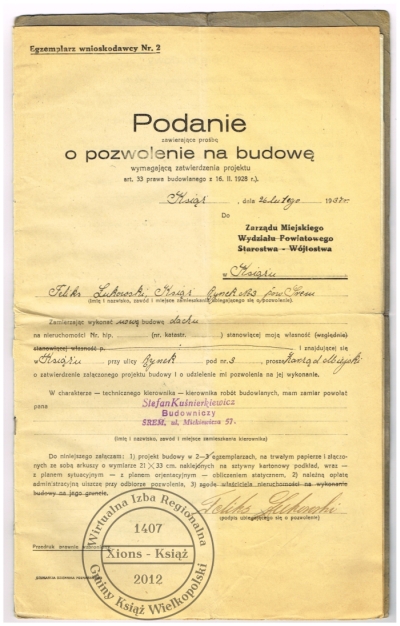 Egzemplarz wnioskodawcy Nr. 2
Podanie
zawierające prośbę
o pozwolenie na budowę
wymagającą zatwierdzenia projektu
art. 33 prawa budowlanego z 16. II. 1928 r.).
Książ, dnia 26 lutego 1937 r.
Do
Zarządu Miejskiego
Wydziału Powiatowego
Starostwa - Wójtostwa
w Książu
Feliks Lukowski, Książ Rynek No3 pow. Śrem
(imię i nazwisko, zawód i miejsce zamieszkania ubiegającego się o pozwolenie).
Zamierzając wykonać nową budowę dachu
na nieruchomości Nr. hip. (nr. katastr. ) stanowiącej moją własność (względnie)
stanowiącej własność p. i znajdującej się
w Książu, przy ulicy Rynek pod nr. 3, proszę
o zatwierdzenie załączonego projektu budowy i o udzielenie mi pozwolenia na jej wykonanie.
W charakterze - technicznego kierownika - kierownika robót budowlanych, mam zamiar powołać
pana Stefan Kuśnierkiewicz
Budowniczy
ŚREM, ul. Mickiewicza 57.
(imię i nazwisko, zawód i miejsce zamieszkania kierownika)
Do niniejszego załączam: 1) projekt budowy w 2-3 egzemplarzach, na trwałym papierze i złączonych
ze sobą arkuszy o wymiarze 21×33 cm. naklejonych na sztywny kartonowy podkład, wraz —
z planem sytuacyjnym — z planem orjentacyjnym — obliczeniem statycznem, 2) należną opłatę
administracyjną uiszczę przy odbiorze pozwolenia, 3) zgodę właściciela nieruchomości na wykonanie
budowy na jego gruncie.
Feliks Lukowski
(podpis ubiegającego się o pozwolenie)
Wirtualna Izba Regionalna
1407
Xions - Książ
2012
Gminy Książ Wielkopolski